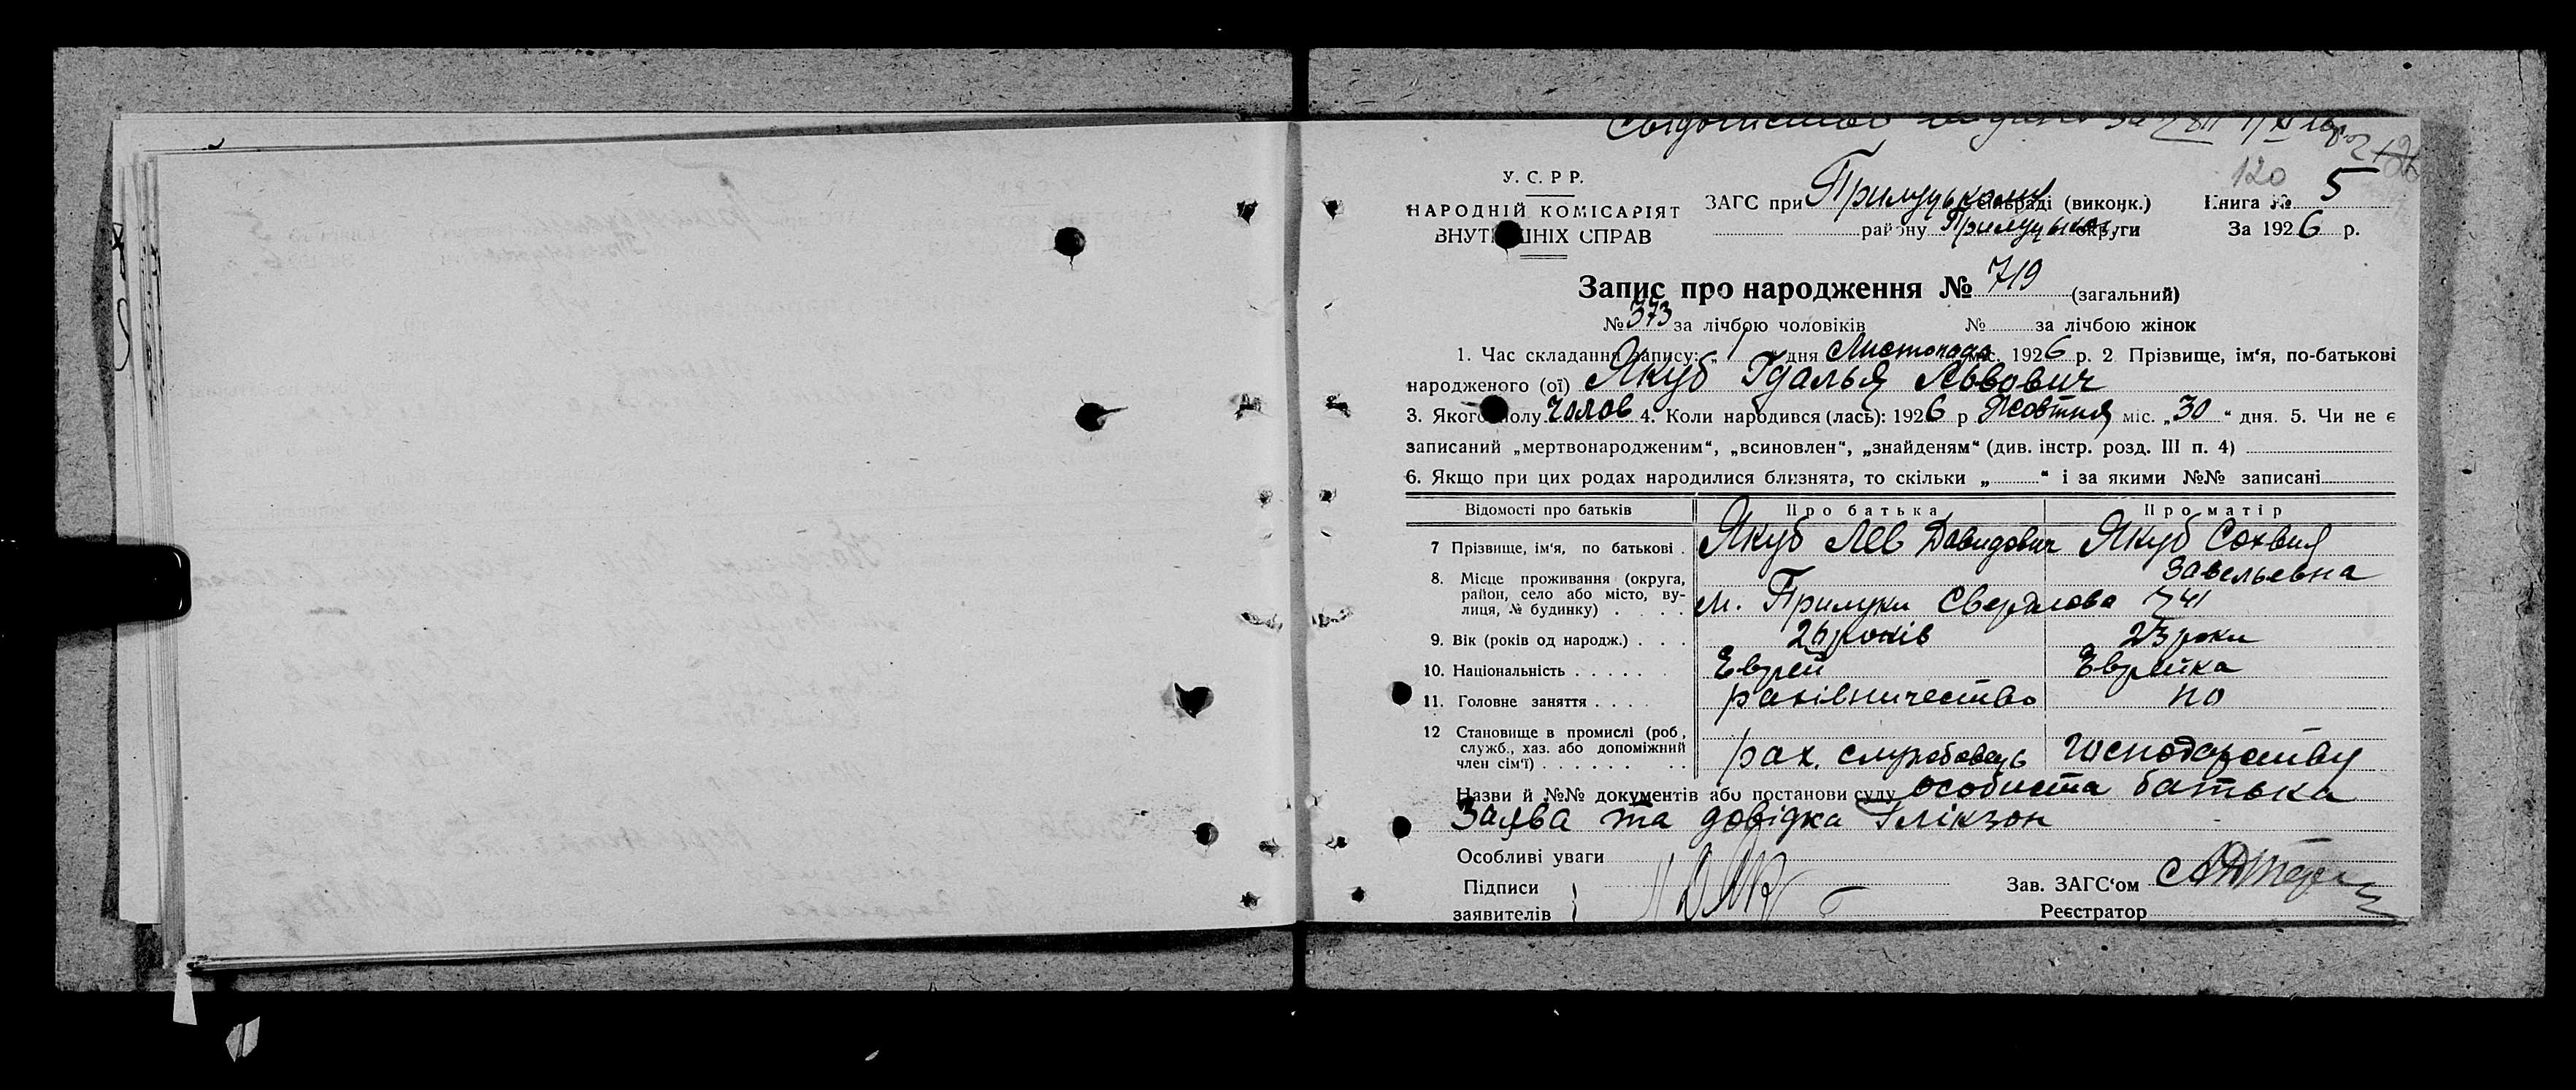 120
У. С. Р Р.
НАРОДНІЙ КОМІСАРІЯТ
ВНУТРІШНІХ СПРАВ
ЗАГС при Прилуцькому міськраді (виконк.) Книга № 5
району Прилуцької округи За 1926 р.
Запис про народження № 719 (загальний)
№ 373 за лічбою чоловіків № за лічбою жінок
1. Час складання запису: „ 1 “ дня Листопада міс. 1926 р. 2 Прізвище, ім‘я, по-батькові
народженого (ої) Якуб Гдалья Львович
3. Якого полу Чолов 4. Коли народився (лась): 1926 р Жовтня міс. „30“ дня. 5. Чи не є
записаний „мертвонародженим“, „всиновлен“, „знайденям“ (див. інстр. розд. III п. 4)
6. Якщо при цих родах народилися близнята, то скільки „ “ і за якими №№ записані
Відомості про батьків Про батька Про матір
7 Прізвище, ім‘я, по батькові . Якуб Лев Давидович Якуб Сохвия
Завельевна
8. Місце проживання (округа,
район, село або місто, ву-
лиця, № будинку) . . . . м. Прилуки Свердлова 741
9. Вік (років од народж.) . . . 26 років 23 роки
10. Національність . . . . . . Еврей Еврейка
11. Головне заняття . . . . рахівничество по
12 Становище в промислі (роб,
служб., хаз. або допоміжний
член сім‘ї) . . . . . . . . рах. службовець господарству
Назви й №№ документів або постанови суду особиста батька
Заява та довідка Глікзон
Особливі уваги
Підписи
заявителів
Зав. ЗАГС‘ом
Реєстратор